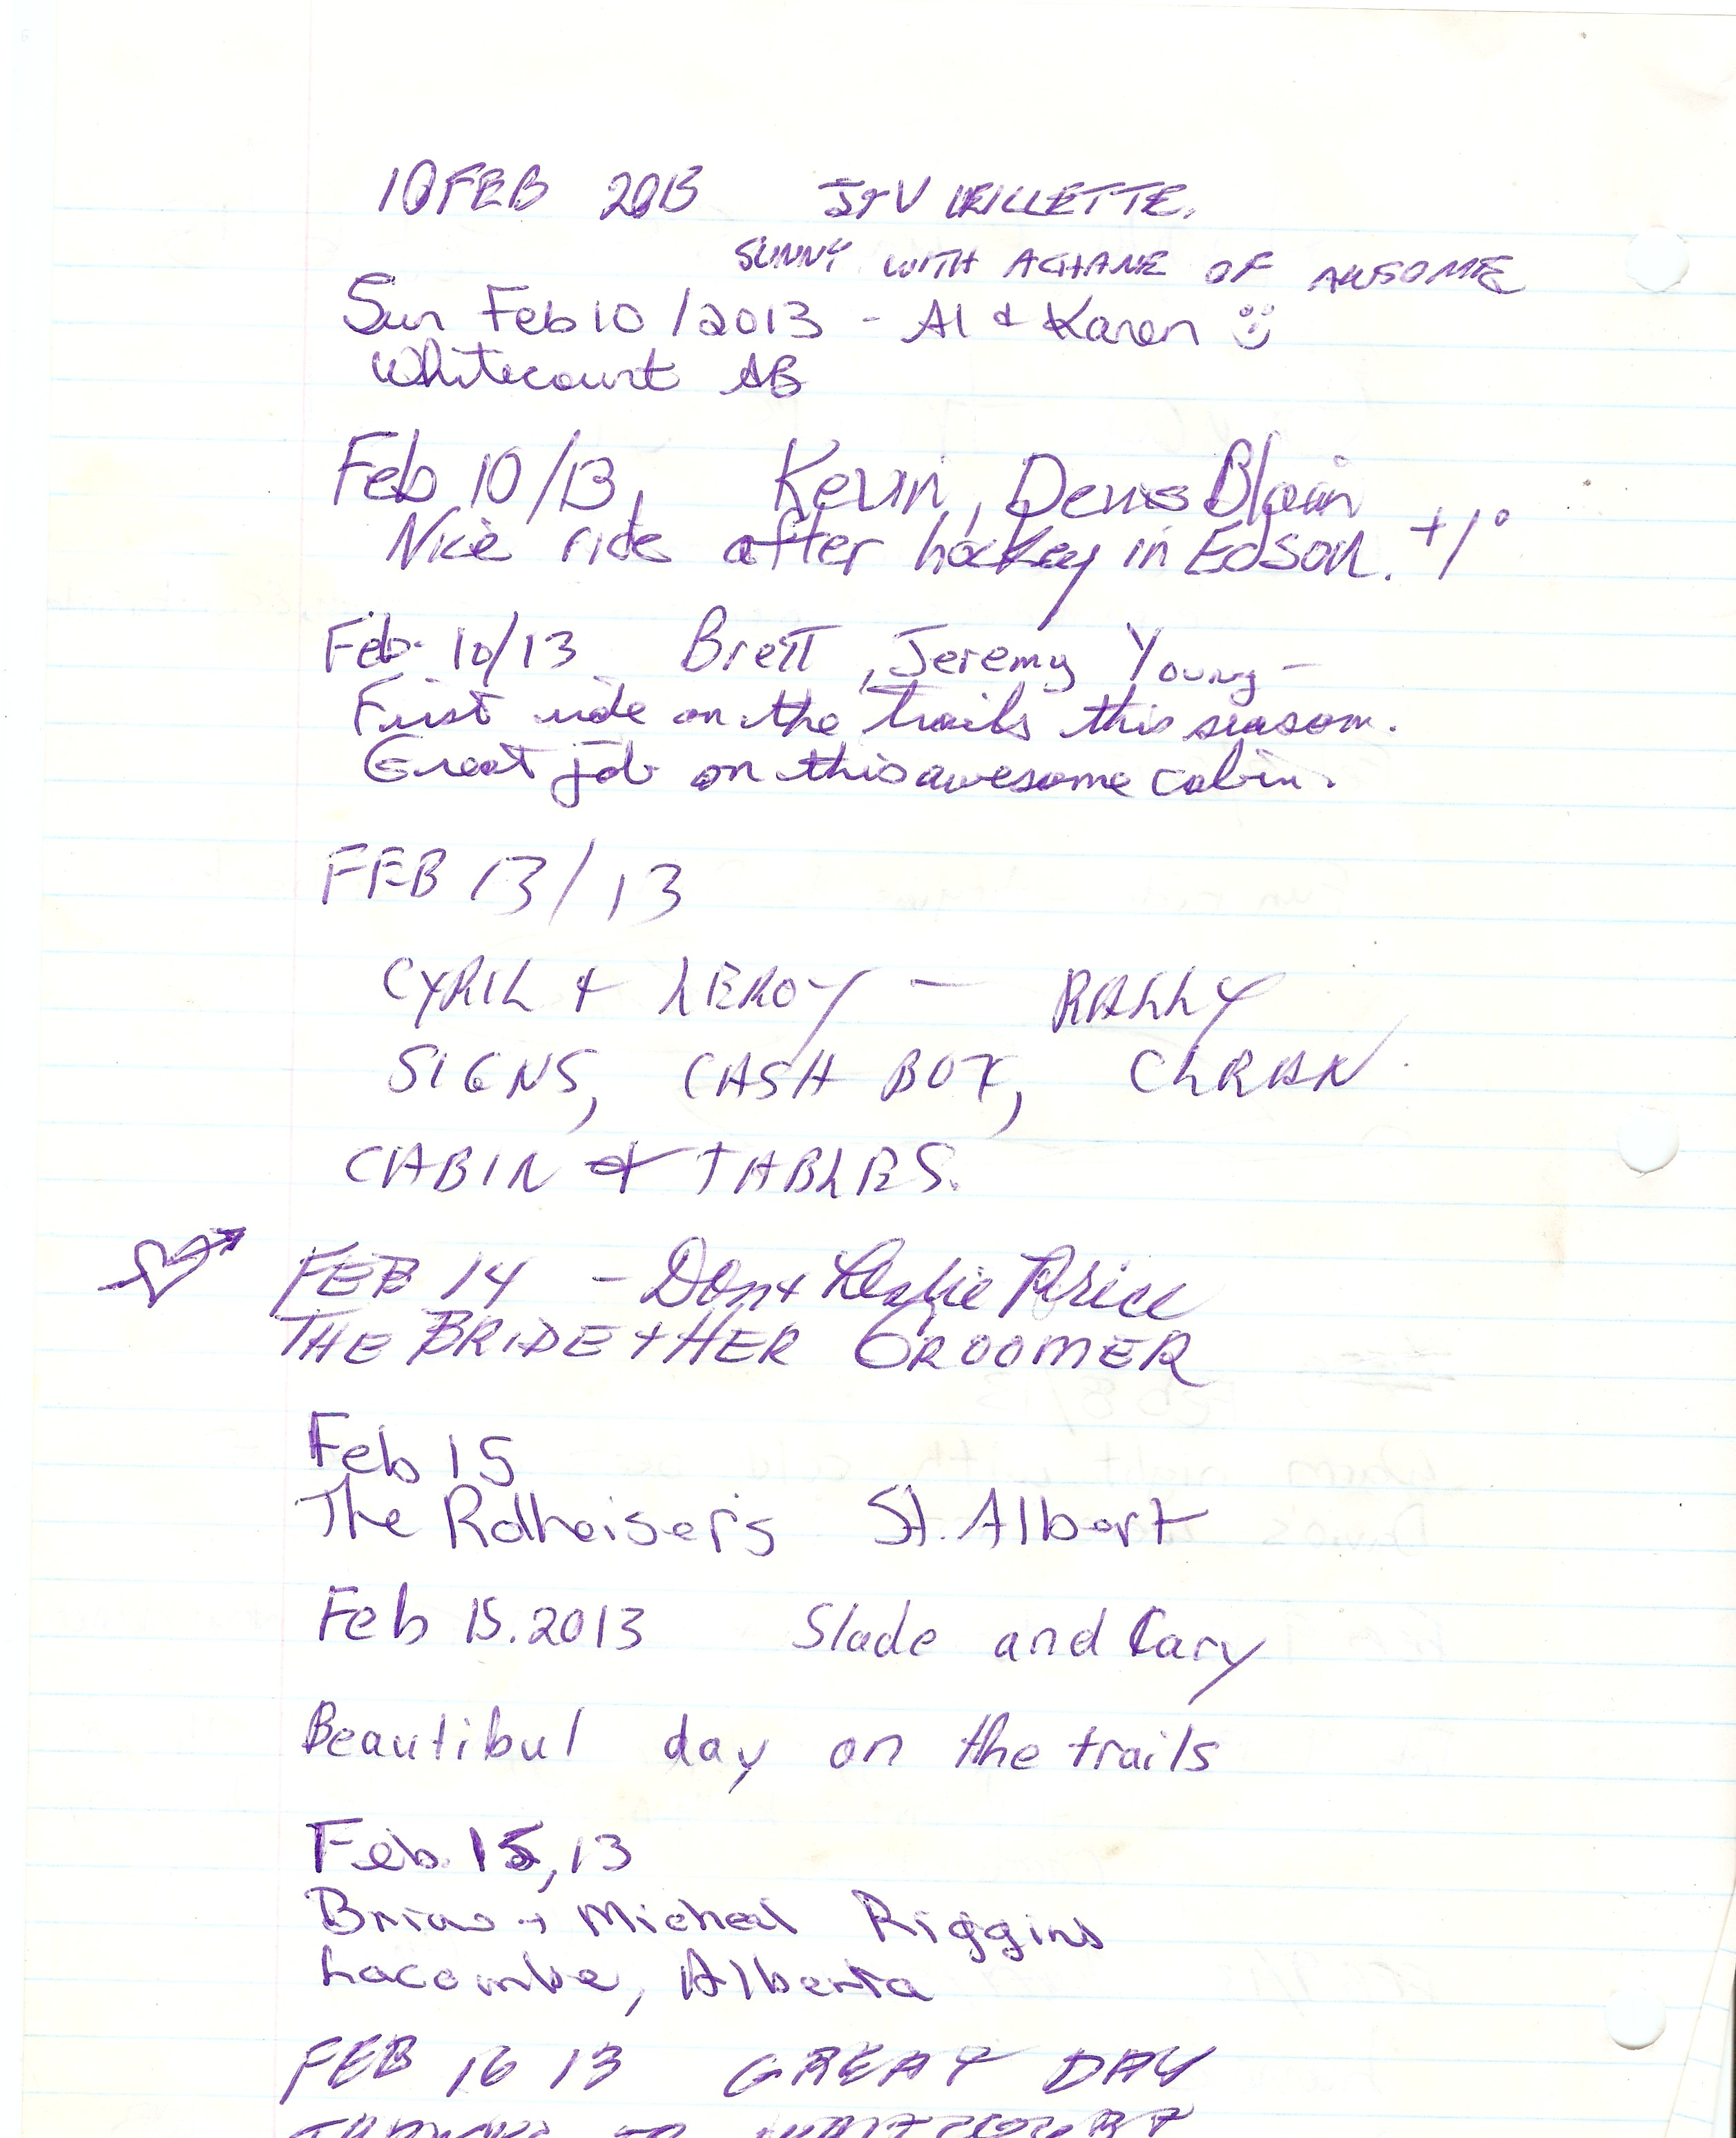 10 FEB 2013 J+V
SUNNY WITH A CHANE OF AWSOME
Sun Feb 10/2013 - Al & Karen
Whitecourt AB
Feb 10/13, Kevin, Denis Blain
Nice ride after hockey in Edson. +1°
Feb. 10/13 Brett, Jeremy Young -
First ride on the trails this season.
Great job on this awesome cabin.
FEB 13/13
CYRIL & LEROY — RALLY
SIGNS, CASH BOX, CLEAN
CABIN & TABLES.
FEB 14 - Don + Leslie Price
THE BRIDE + HER GROOMER
Feb 15
The Rolheiser's St. Albert
Feb 15.2013 Slade and Cary
Beautibul day on the trails
Feb. 15, 13
Brian + Micheal Riggins
Lacombe, Alberta
FEB 16 13 GREAT DAY
THANKS TO WHITECOURT